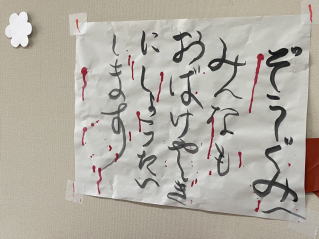 ぞうぐみへ
みんなも
おばけやしき
にしょうたい
します